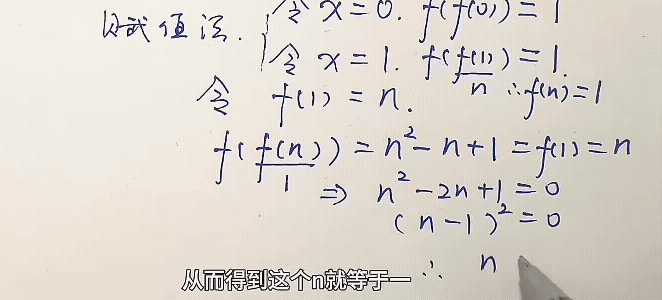 令 x=0. f(f(0))=1
赋值法.
令 x=1. f(f(1))=1.
n ∴f(n)=1
令 f(1)=n.
f(f(n))=n²-n+1=f(1)=n
1 ⇒ n²-2n+1=0
(n-1)²=0
∴ n
从而得到这个n就等于一